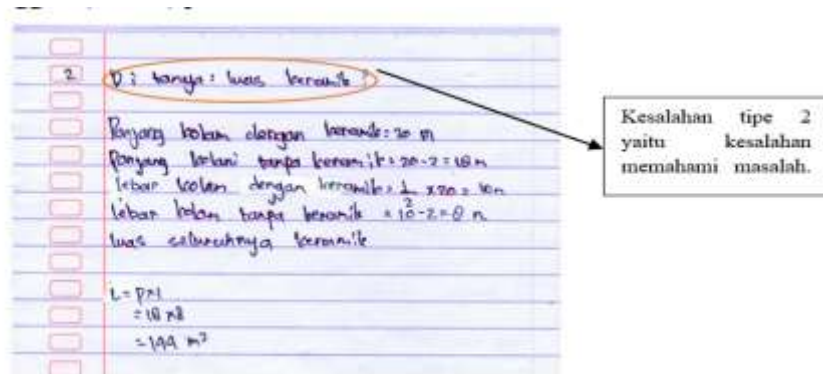 2 Di tanya: luas keramik?
Panjang kolam dengan keramik = 20 m
Panjang kolam tanpa keramik = 20 - 2 = 18 m
lebar kolam dengan keramik = 1/2 x 20 = 10 m
lebar kolam tanpa keramik = 10 - 2 = 8 m
luas seluruhnya keramik
L = p x l
= 18 x 8
= 144 m²
Kesalahan tipe 2
yaitu kesalahan
memahami masalah.